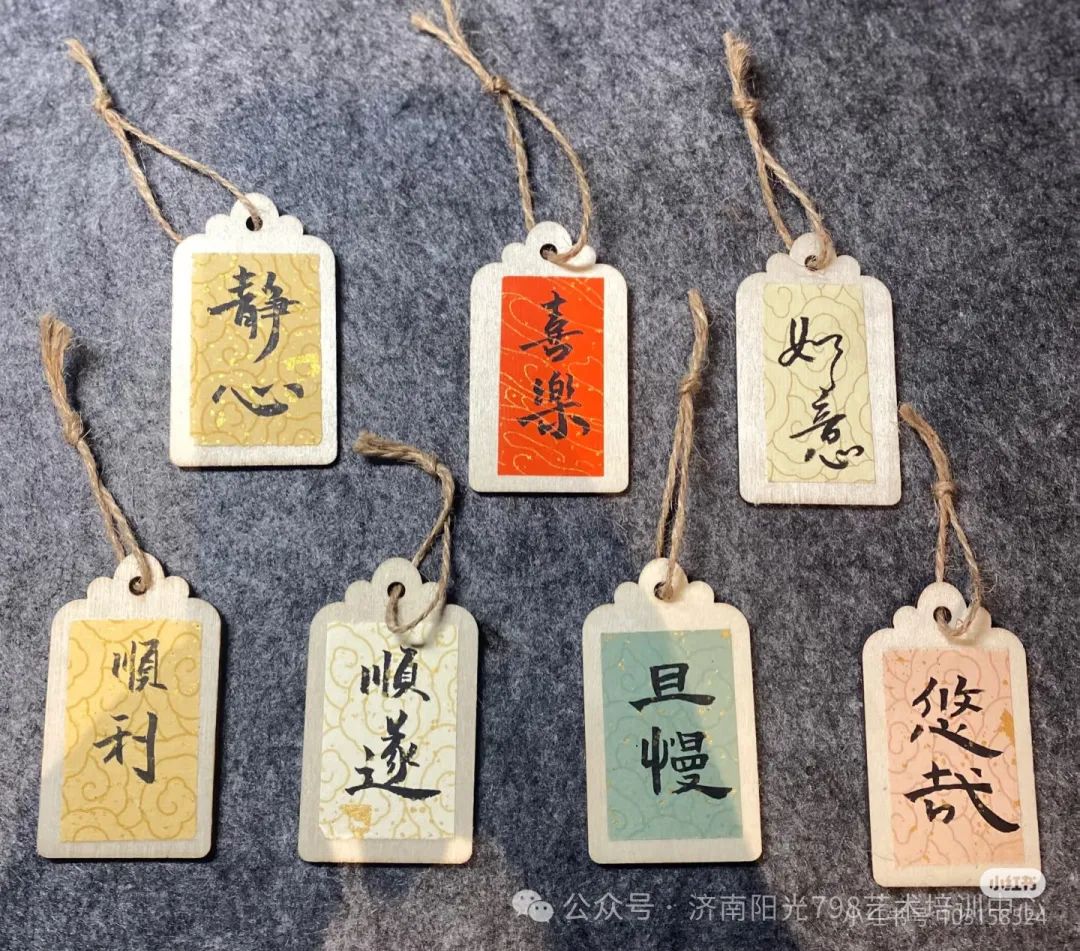 靜心
喜樂
如意
順利
順遂
旦慢
悠哉
小红书
公众号 · 济南阳光798艺术培训中心